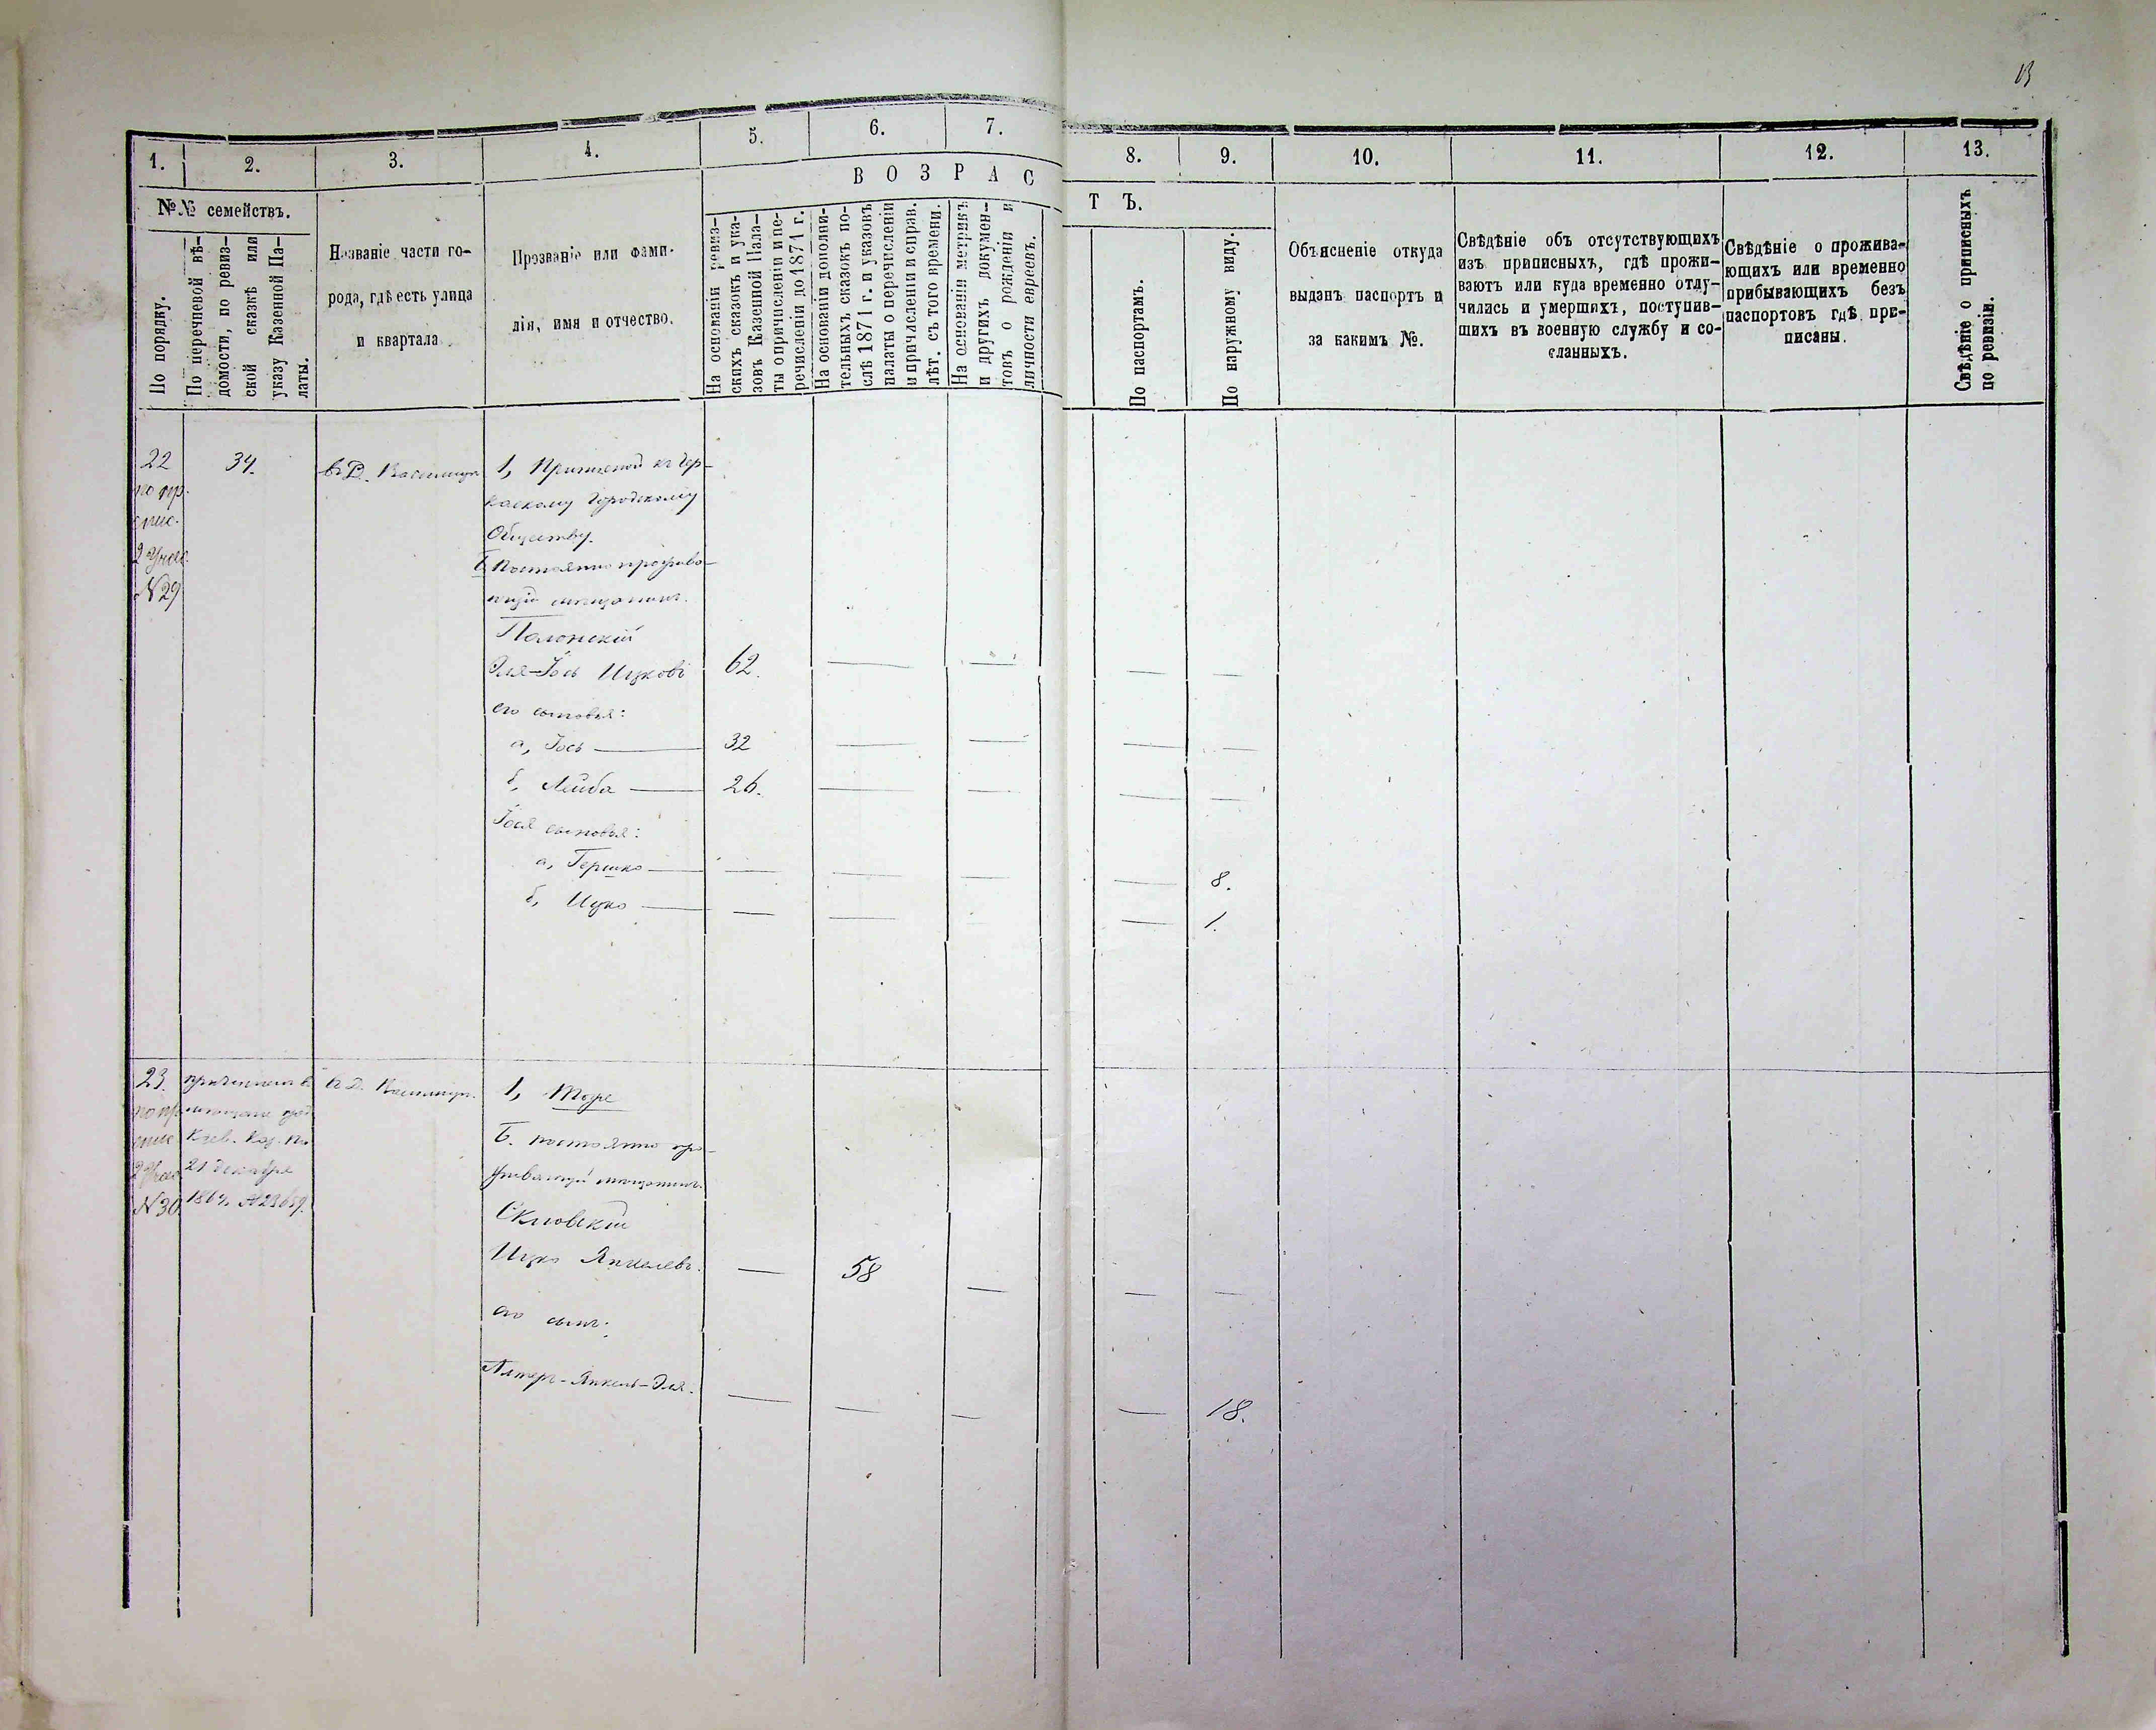 13
1. 2. 3. 4. 5. 6. 7. 8. 9. 10. 11. 12. 13.
№№ семействъ.
По порядку.
По перечневой вѣ-
домости, по ревиз-
ской сказкѣ или
указу Казенной Па-
латы.
Названіе части го-
рода, гдѣ есть улица
и квартала.
Прозваніе или фами-
лія, имя и отчество.
ВОЗРАС
ТЪ.
На основаніи ревиз-
скихъ сказокъ и ука-
зовъ Казенной Пала-
ты о причисленіи и пе-
речисленіи до 1871 г.
На основаніи дополни-
тельныхъ сказокъ по-
слѣ 1871 г. и указовъ
палаты о перечисленіи
и причисленіи и справ.
лѣт. съ того времени.
На основаніи метрикъ
и другихъ докумен-
товъ о рожденіи и
личности евреевъ.
По паспортамъ.
По наружному виду.
Объясненіе откуда
выданъ паспортъ и
за какимъ №.
Свѣдѣніе объ отсутствующихъ
изъ приписныхъ, гдѣ прожи-
ваютъ или куда временно отлу-
чились и умершихъ, поступив-
шихъ въ военную службу и со-
сланныхъ.
Свѣдѣніе о прожива-
ющихъ или временно
прибывающихъ безъ
паспортовъ гдѣ при-
писаны.
Свѣдѣніе о приписныхъ
по ревизіи.
22
по пр.
спис.
2 Учас.
№29
34.
въ Д.
1, къ Чер-
каскому Городскому
Обществу.
Б. Постоянно прожива-
ющій мещанинъ.
Полонскій
Эля-Іось Ицковъ 62.
его сыновья:
а, Іось 32
б, Лейба 26.
Іося сыновья:
а, Гершко 8.
б, Ицко 1.
23.
по пр.
спис.
2 Учас.
№30.
Кіев. Каз. Па.
21 декабря
1864,
въ Д.
1, Тоже
Б. постоянно про-
живающій мещанинъ.
Ицко Янкелевъ. 58
его сынъ:
Алтеръ-Янкель-Эля. 18.